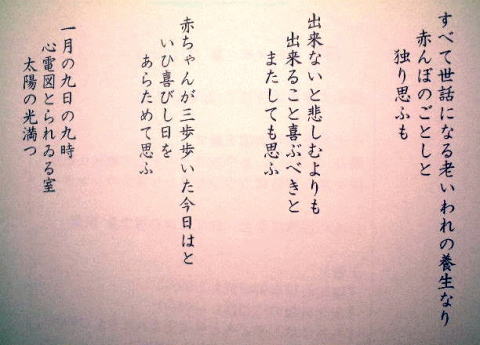 すべて世話になる老いわれの養生なり
赤んぼのごとしと
独り思ふも
出来ないと悲しむよりも
出来ること喜ぶべきと
またしても思ふ
赤ちゃんが三歩歩いた今日はと
いひ喜びし日を
あらためて思ふ
一月の九日の九時
心電図とられゐる室
太陽の光満つ